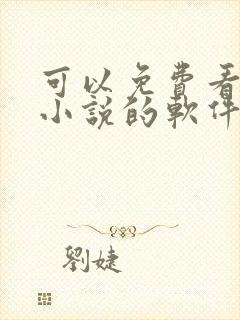 可以免費看
小說的軟件
劉婕